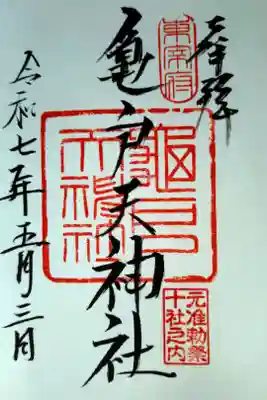 奉拝
東宰府
亀戸天神社
龜戸
天神社
元准勅祭
十社之内
令和七年五月三日